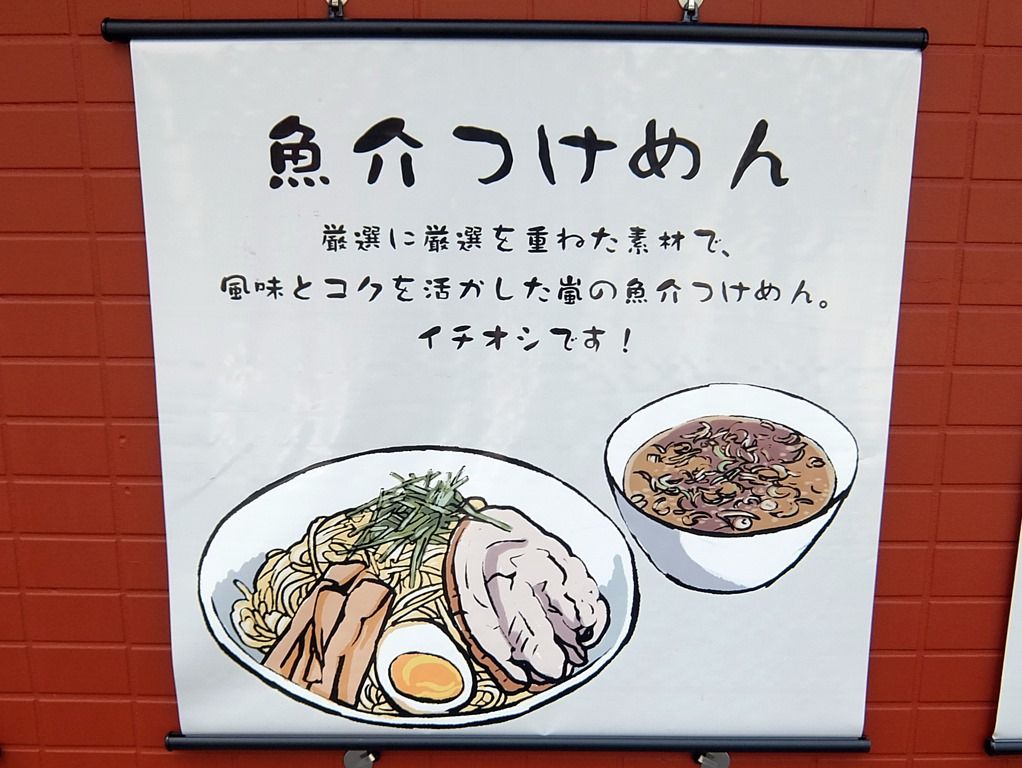 魚介つけめん
厳選に厳選を重ねた素材で、
風味とコクを活かした嵐の魚介つけめん。
イチオシです！